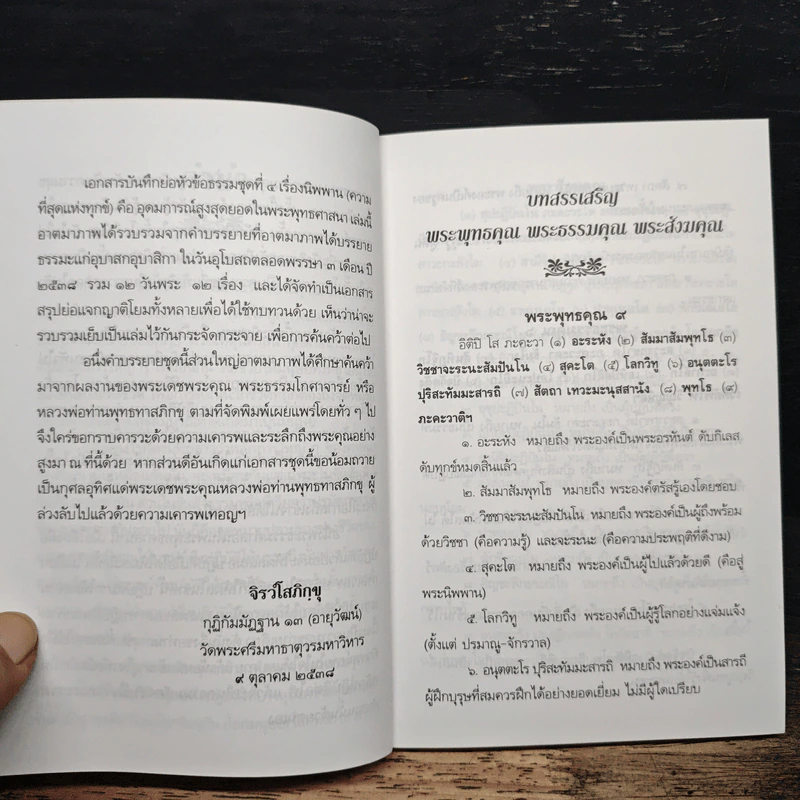 เอกสารบันทึกย่อหัวข้อธรรมชุดที่ ๔ เรื่องนิพพาน (ความ
ที่สุดแห่งทุกข์) คือ อุดมการณ์สูงสุดยอดในพระพุทธศาสนา เล่มนี้
อาตมาภาพได้รวบรวมจากคำบรรยายที่อาตมาภาพได้บรรยาย
ธรรมะแก่อุบาสกอุบาสิกา ในวันอุโบสถตลอดพรรษา ๓ เดือน ปี
๒๕๓๘ รวม ๑๒ วันพระ ๑๒ เรื่อง และได้จัดทำเป็นเอกสาร
สรุปย่อแจกญาติโยมทั้งหลายเพื่อได้ใช้ทบทวนด้วย เห็นว่าน่าจะ
รวบรวมเย็บเป็นเล่มไว้กันกระจัดกระจาย เพื่อการค้นคว้าต่อไป
อนึ่งคำบรรยายชุดนี้ส่วนใหญ่อาตมาภาพได้ศึกษาค้นคว้า
มาจากผลงานของพระเดชพระคุณ พระธรรมโกศาจารย์ หรือ
หลวงพ่อท่านพุทธทาสภิกขุ ตามที่จัดพิมพ์เผยแพร่โดยทั่ว ๆ ไป
จึงใคร่ขอกราบคารวะด้วยความเคารพและระลึกถึงพระคุณอย่าง
สูงมา ณ ที่นี้ด้วย หากส่วนดีอันเกิดแก่เอกสารชุดนี้ขอน้อมถวาย
เป็นกุศลอุทิศแด่พระเดชพระคุณหลวงพ่อท่านพุทธทาสภิกขุ ผู้
ล่วงลับไปแล้วด้วยความเคารพเทอญฯ
จิรวํโสภิกฺขุ
กุฏิกัมมัฏฐาน ๑๓ (อายุวัฒน์)
วัดพระศรีมหาธาตุวรมหาวิหาร
๙ ตุลาคม ๒๕๓๘
บทสรรเสริญ
พระพุทธคุณ พระธรรมคุณ พระสังฆคุณ
พระพุทธคุณ ๙
อิติปิ โส ภะคะวา (๑) อะระหัง (๒) สัมมาสัมพุทโธ (๓)
วิชชาจะระนะสัมปันโน (๔) สุคะโต (๕) โลกวิทู (๖) อนุตตะโร
ปุริสะทัมมะสารถิ (๗) สัตถา เทวะมะนุสสานัง (๘) พุทโธ (๙)
ภะคะวาติฯ
๑. อะระหัง หมายถึง พระองค์เป็นพระอรหันต์ ดับกิเลส
ดับทุกข์หมดสิ้นแล้ว
๒. สัมมาสัมพุทโธ หมายถึง พระองค์ตรัสรู้เองโดยชอบ
๓. วิชชาจะระนะสัมปันโน หมายถึง พระองค์เป็นผู้ถึงพร้อม
ด้วยวิชชา (คือความรู้) และจะระนะ (คือความประพฤติที่ดีงาม)
๔. สุคะโต หมายถึง พระองค์เป็นผู้ไปแล้วด้วยดี (คือสู่
พระนิพพาน)
๕. โลกวิทู หมายถึง พระองค์เป็นผู้รู้โลกอย่างแจ่มแจ้ง
(ตั้งแต่ ปรมาณู-จักรวาล)
๖. อนุตตะโร ปุริสะทัมมะสารถิ หมายถึง พระองค์เป็นสารถี
ผู้ฝึกบุรุษที่สมควรฝึกได้อย่างยอดเยี่ยม ไม่มีผู้ใดเปรียบ